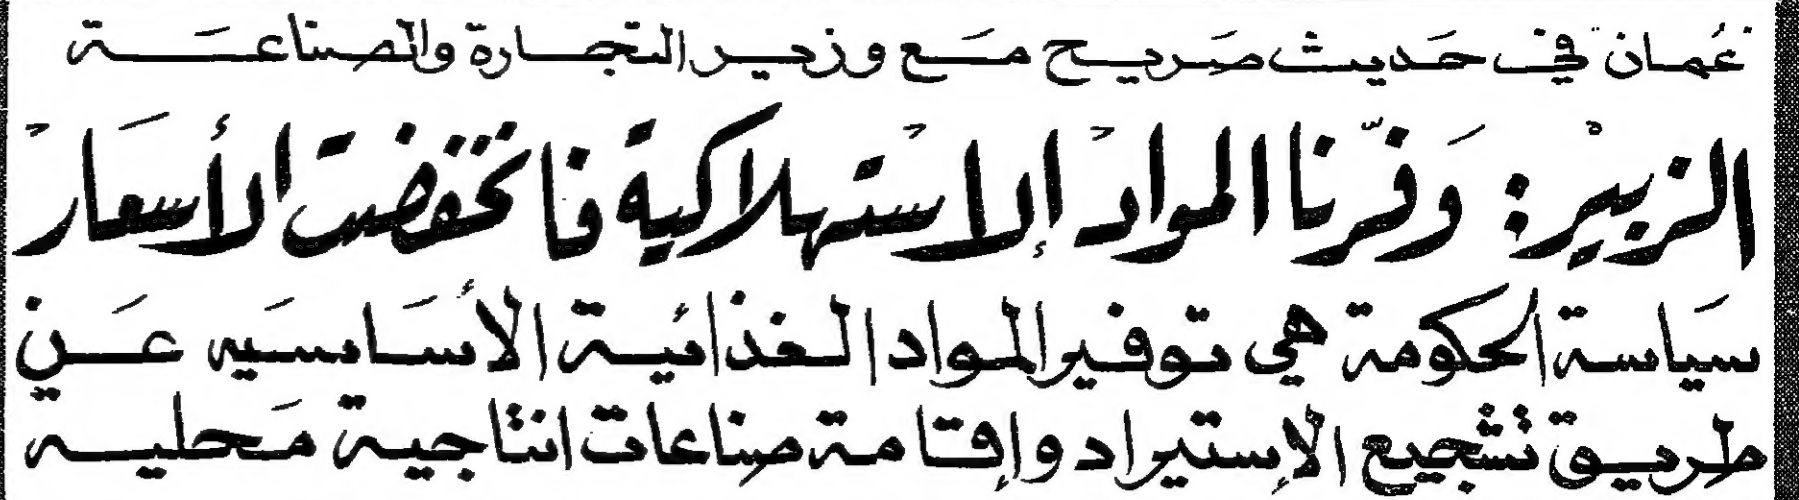 "عُمان" في حَديث صَريح مَع وزير التجارة والصناعَة
الزبيْر: وَفّرنا المواد الإستهلاكية فانخفضت الأسعَار
سَياسة الحكومة هي توفير المواد الغذائية الأسَاسَيه عَن
طريق تشجيع الإستيراد وإقامة صناعات انتاجية مَحليه